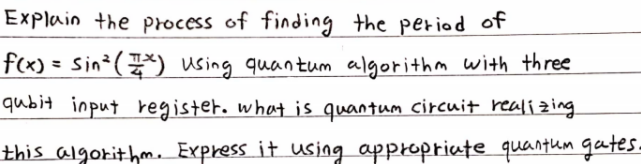 Explain the process of finding the period of
f(x) = sin²(πx/4) using quantum algorithm with three
qubit input register. what is quantum circuit realizing
this algorithm. Express it using appropriate quantum gates.